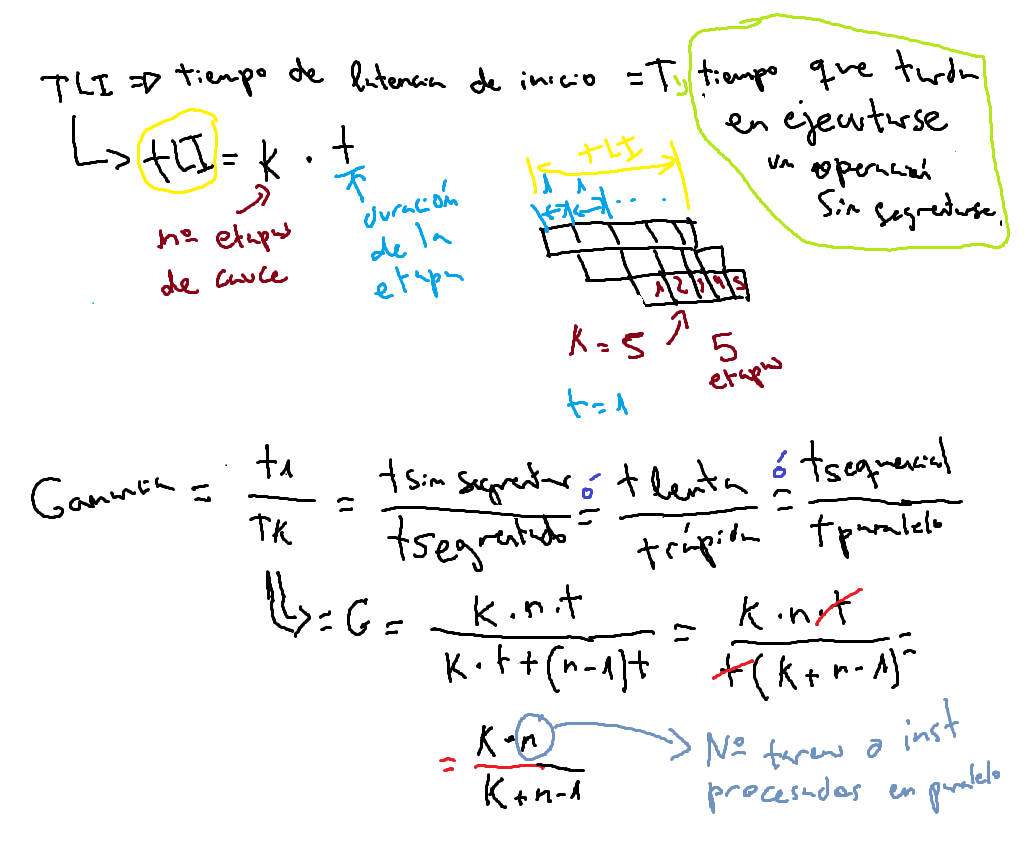 TLI => tiempo de latencia de inicio = T y tiempo que tarda
en ejecutarse
un operación
sin segmentarse.
tLI = k · t
nº etapas
de cauce
duración
de la
etapa
tLI
1 1 . . .
1 2 3 4 5
K = 5
5
etapas
t = 1
Ganancia = t1 / TK = t sin segmentar / t segmentado ó = t lenta / t rápida ó = t sequencial / t paralelo
= G = K · n · t / K · t + (n-1)t = K · n · t / t (K + n - 1) =
= K · n / K + n - 1
Nº tareas o inst
procesadas en paralelo